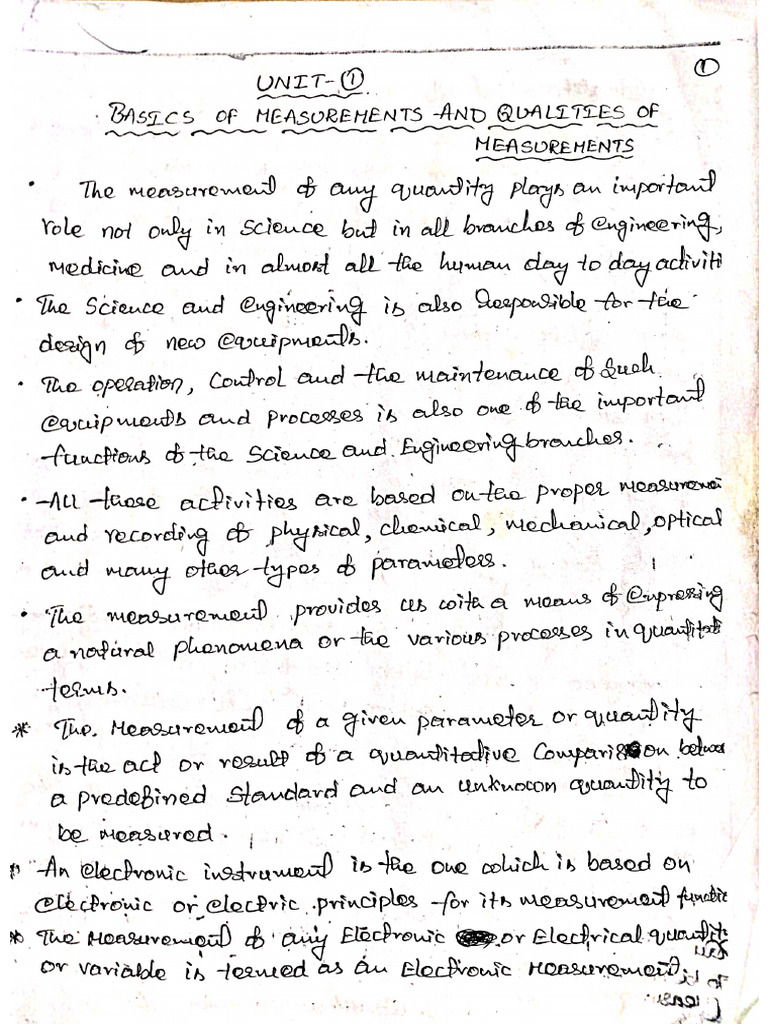 ①
UNIT-①
BASICS OF MEASUREMENTS AND QUALITIES OF
MEASUREMENTS
• The measurement of any quantity plays an important
role not only in Science but in all branches of engineering,
medicine and in almost all the human day to day activiti
• The Science and engineering is also responsible for the
design of new equipments.
• The operation, Control and the maintenance of Such
equipments and processes is also one of the important
functions of the Science and Engineering branches.
• All these activities are based on the proper measuremen
and recording of physical, chemical, mechanical, optical
and many other types of parameters.
• The measurement provides us with a means of expressing
a natural phenomena or the various processes in quantitati
terms.
* The Measurement of a given parameter or quantity
is the act or result of a quantitative Comparison between
a predefined Standard and an unknown quantity to
be measured.
* An electronic instrument is the one which is based on
electronic or electric principles for its measurement functio
* The Measurement of any Electronic or Electrical quantit
or variable is termed as an Electronic Measurement.